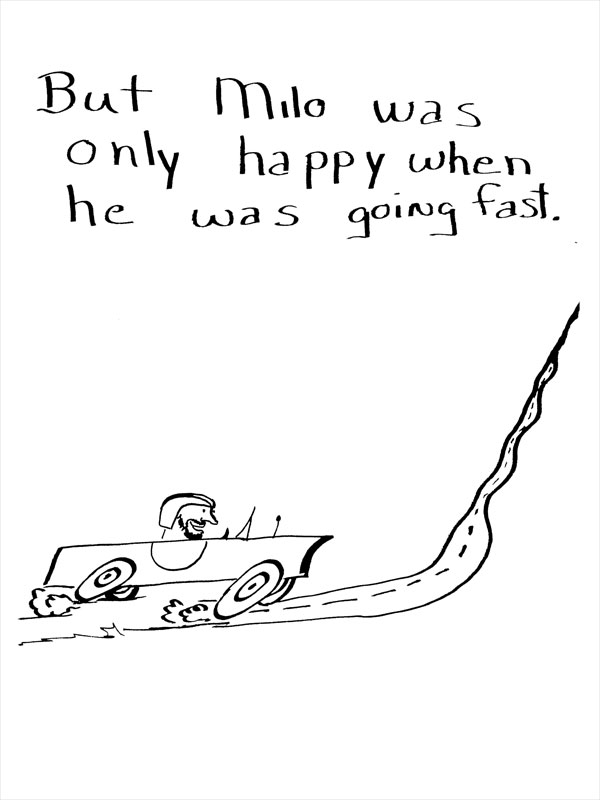 But Milo was
only happy when
he was going fast.